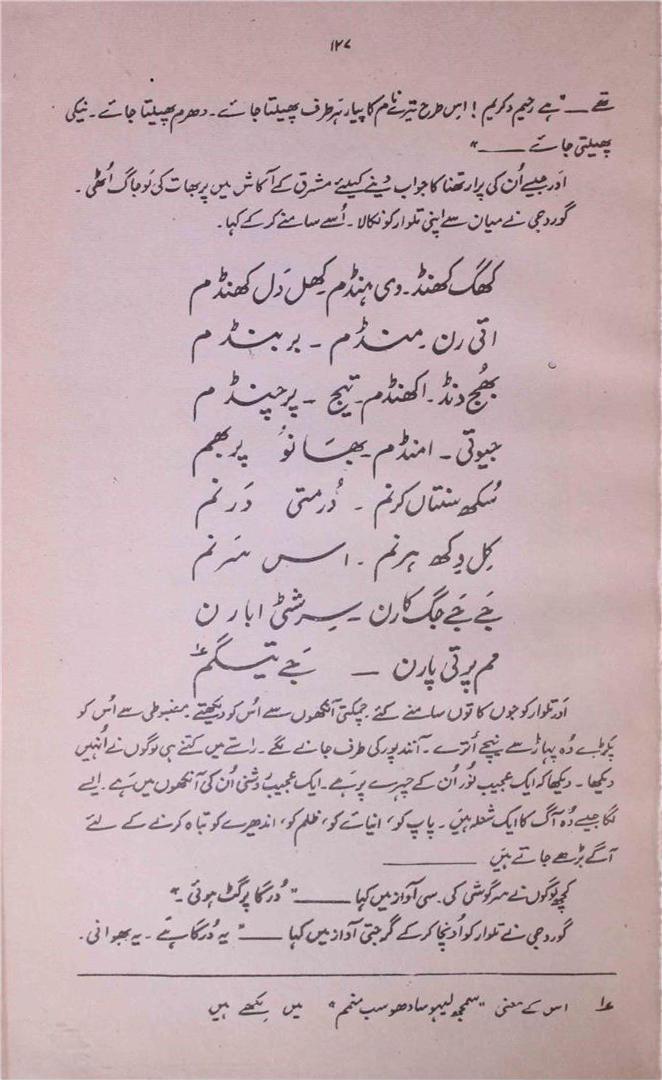 ۱۲۷
تھے ـــ "ہے رحیم و کریم! اِس طرح تیرے نام کا پیار ہر طرف پھیلتا جائے۔ دھرم پھیلتا جائے۔ نیکی
پھیلتی جائے ـــ"
اور جیسے اُن کی پرارتھنا کا جواب دینے کیلئے مشرق کے آکاش میں پربھات کی لَو جاگ اُٹھی۔
گوروجی نے میان سے اپنی تلوار کو نکالا۔ اُسے سامنے کر کے کہا۔
کھگ کھنڈ۔ دی ہنڈم کھل دَل کھنڈم
اتی رن منڈم ۔ بر بنڈم
بھُج دنڈ۔ اکھنڈم۔ تیج ۔ پرچنڈم
جیوتی ۔ امنڈم۔ بھانوُ پربھم
سُکھ سنتاں کرنم ۔ دُرمتی دَرنم
کِل دِکھ ہرنم ۔ اسی سَرنم
جَے جَے جگ کارن ۔ سرشٹی ابارن
مم پرتی پارن ـــ جَے تیگم ؂۱
اور تلوار کو جوں کا توں سامنے کئے۔ چمکتی آنکھوں سے اُس کو دیکھتے۔ مضبوطی سے اُس کو
پکڑے وُہ پہاڑ سے نیچے اُترے۔ آنندپور کی طرف جانے لگے۔ راستے میں کتنے ہی لوگوں نے اُنہیں
دیکھا۔ دیکھا کہ ایک عجیب نُور اُن کے چہرے پر ہے۔ ایک عجیب روشنی اُن کی آنکھوں میں ہے۔ ایسے
لگا جیسے وُہ آگ کا ایک شعلہ ہیں۔ پاپ کو، انیائے کو، ظلم کو، اندھیرے کو تباہ کرنے کے لئے
آگے بڑھے جاتے ہیں ـــ
کچھ لوگوں نے سرگوشی کی۔ سی آواز میں کہا ـــ "دُرگا پرگٹ ہوئی۔"
گوروجی نے تلوار کو اُونچا کر کے گرجتی آواز میں کہا ـــ "یہ دُرگا ہے۔ یہ بھوانی۔
؂۱ اس کے معنی "سمجھ لیہو سادھو سب منمم" میں لِکھے ہیں